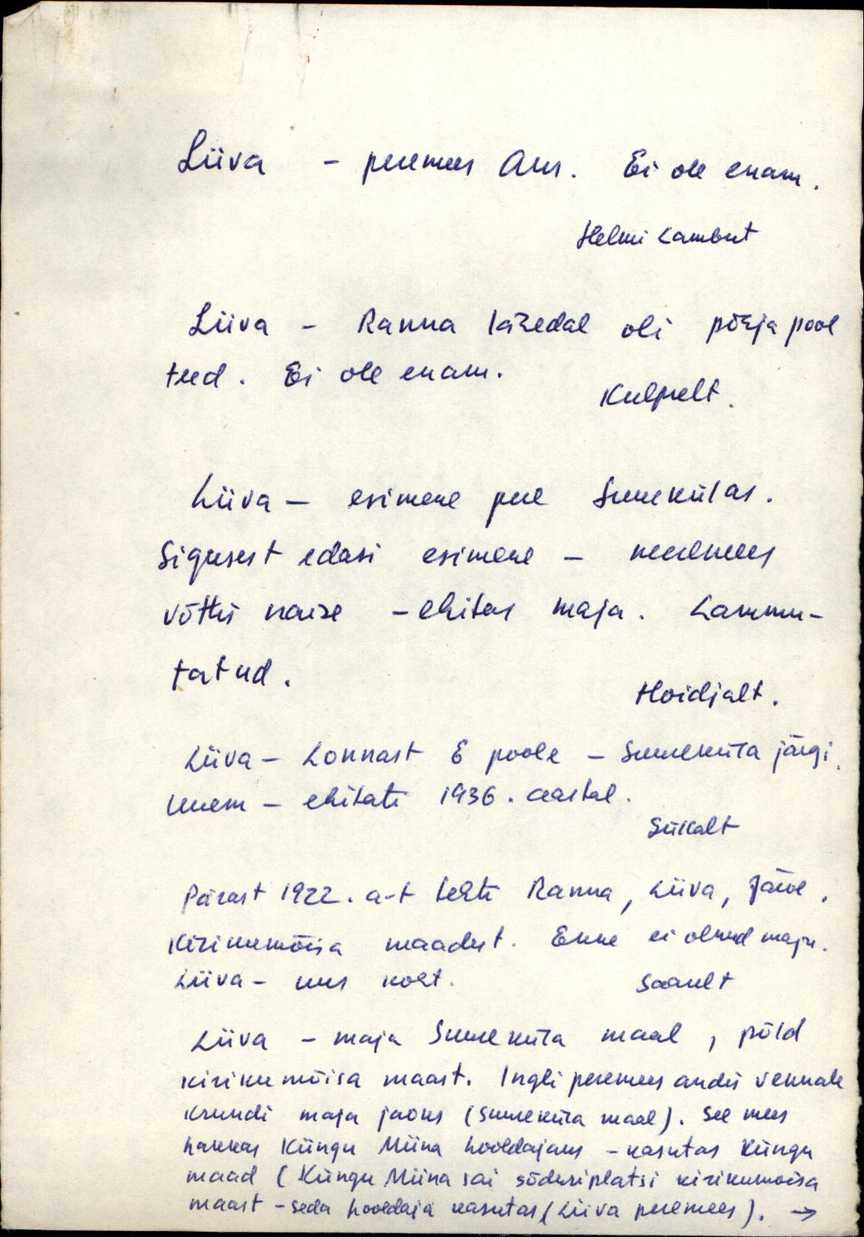 Liiva - peremees Aus. Ei ole enam.
Helmi Lambut
Liiva - Ranna lähedal oli põhja pool
teed. Ei ole enam.
Kulpelt.
Liiva - esimene pere Suurekülas.
edasi esimene - meremees
võttis naise - ehitas maja. Lammu-
tatud.
Hoidjalt.
Liiva - Lonnast E poole - Suureküla järgi.
Uuem - ehitati 1936. aastal.
Siikalt
Pärast 1922. a-t tehti Ranna, Liiva, Järve.
Kirikumõisa maadest. Enne ei olnud maju.
Liiva - uus koht.
Saarelt
Liiva - maja Suureküla maal, põld
kirikumõisa maast. Ingli peremees andis vennale
krundi maja jaoks (Suureküla maal). See mees
hakkas Küngu Miina hooldajaks - kasutas Küngu
maad (Küngu Miina sai sõduriplatsi kirikumõisa
maast - seda hooldaja kasutas (Liiva peremees). →